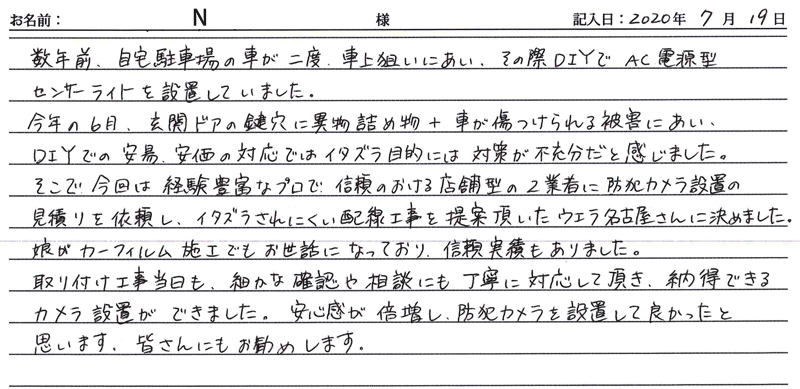 お名前： N 様 記入日：2020年 7月 19日
数年前、自宅駐車場の車が二度、車上狙いにあい、その際DIYで AC電源型
センサーライトを設置していました。
今年の6月、玄関ドアの鍵穴に異物詰め物＋車が傷つけられる被害にあい、
DIYでの安易、安価の対応ではイタズラ目的には対策が不充分だと感じました。
そこで今回は経験豊富なプロで信頼のおける店舗型の2業者に防犯カメラ設置の
見積りを依頼し、イタズラされにくい配線工事を提案頂いたウエラ名古屋さんに決めました。
娘がカーフィルム施工でもお世話になっており、信頼実績もありました。
取り付け工事当日も、細かな確認や相談にも丁寧に対応して頂き、納得できる
カメラ設置ができました。安心感が倍増し、防犯カメラを設置して良かったと
思います、皆さんにもお勧めします。